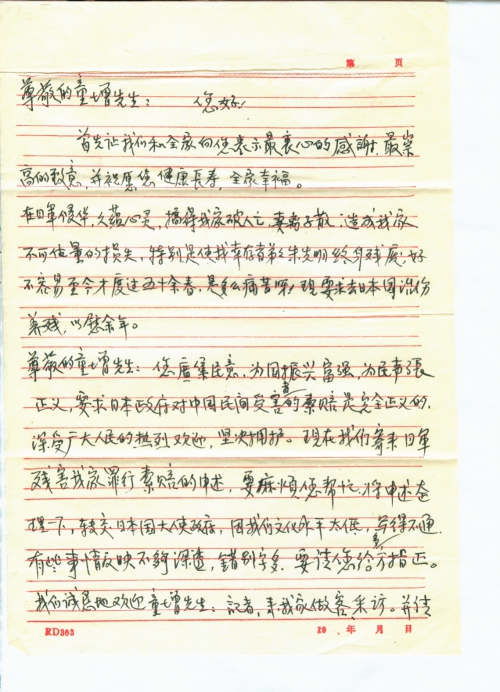 第 页
尊敬的童增先生： 您好！
首先让我们和全家向您表示最衷心的感謝，最崇
高的敬意，并祝愿您健康長寿，全家幸福。
在日軍侵华，久蕴心灵，搞得我家破人亡，妻离子散，造成我家
不可估量的损失，特别是使我幸存者弟朱光明终身残废，好
不容易至今才度这五十余春，是多么痛苦呀！现要求去日本国治伤
养残，以慰余年。
尊敬的童增先生：您廣集民意，为国振兴富强，为民声張
正义，要求日本政府对中国民间受害者的索赔是完全正义的，
深受广大人民的热烈欢迎，坚决拥护。现在我们寄来日軍
残害我家罪行索赔的申述，要麻煩您帮忙，将申述整
理一下，转交日本国大使政府，因我们文化水平太低，写得不通，
有些事情反映不夠深透，錯别字多，要请您给予指正。
我们诚恳地欢迎童增先生：記者，来我家做客采访。并请
RD303 19 年 月 日